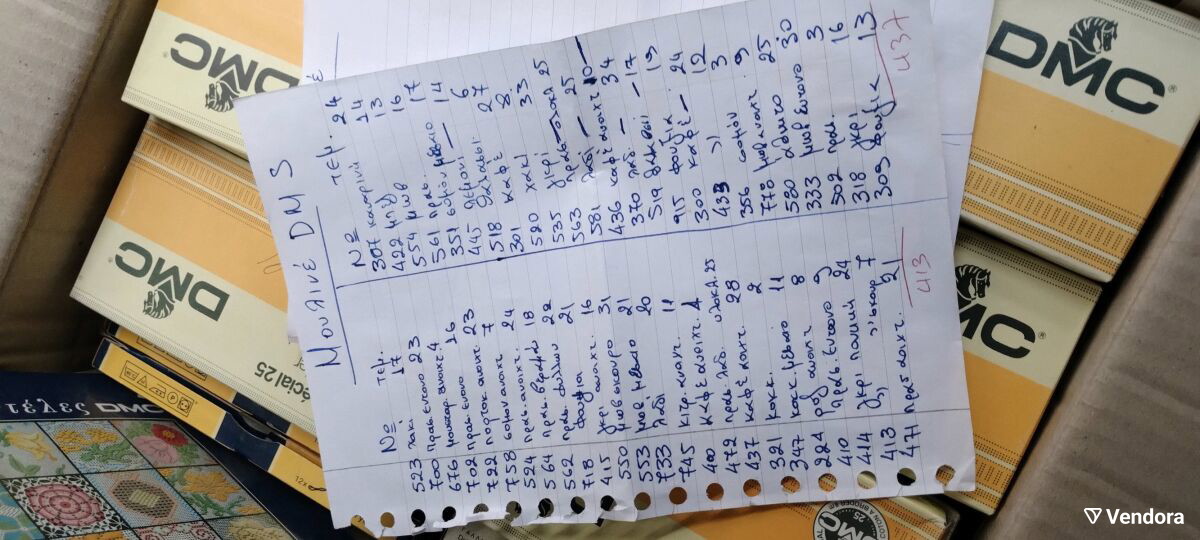 Μουλινέ DMS
Νο τεμ.
523 χακί 17
700 Πρασ. έντονο 23
676 μουσταρ. ανοιχτ 4
702 πρασ. έντονο 26
722 πορτοκ. ανοιχτ 23
758 σομόν ανοιχτ 7
524 πρασ. ανοιχτ. 24
564 πρασ. βεραμάν 18
562 πρασ. φύλλων 22
718 φούξια 21
415 γκρι ανοιχτ. 16
550 μωβ σκούρο 31
553 μωβ μεσαίο 21
733 λαδί 20
745 κιτρ. ανοιχτ. 11
400 καφέ ανοιχτ. 4
472 πρασ. λαδ. ολοκλ. 25
437 καφέ ανοιχτ. 28
321 κοκκ. 2
347 κοκκ. μεσαίο 11
224 ροζ ανοιχτ 8
410 Πρασ. έντονο 9
414 γκρι ποντικί 24
413 7
471 πρασ. ανοιχτ. 21
413
Νο τεμ.
307 καναρινί 24
422 μπεζ 14
554 μωβ 13
561 πρασ. 16
351 σομόν μεσαίο 17
445 λεμονί 14
518 γαλάζιο 6
301 καφέ 27
520 χακί 8
535 γκρι 33
563 πρασ. ολοκλ. 25
581 λαδί 25
436 καφέ ανοιχτ 10
370 λαδ. 34
519 θαλασσί 17
915 φούξια 19
300 καφέ 24
433 〃 12
356 σομόν 3
778 μωβ ανοιχτ. 9
580 λαδί 25
333 μωβ έντονο 30
302 πρασ. 3
318 γκρι 16
309 φούξια 13
437
DMC
DMC
DMC
DMC
DMC
Special 25
τέλες DMC
DMC
25
Vendora